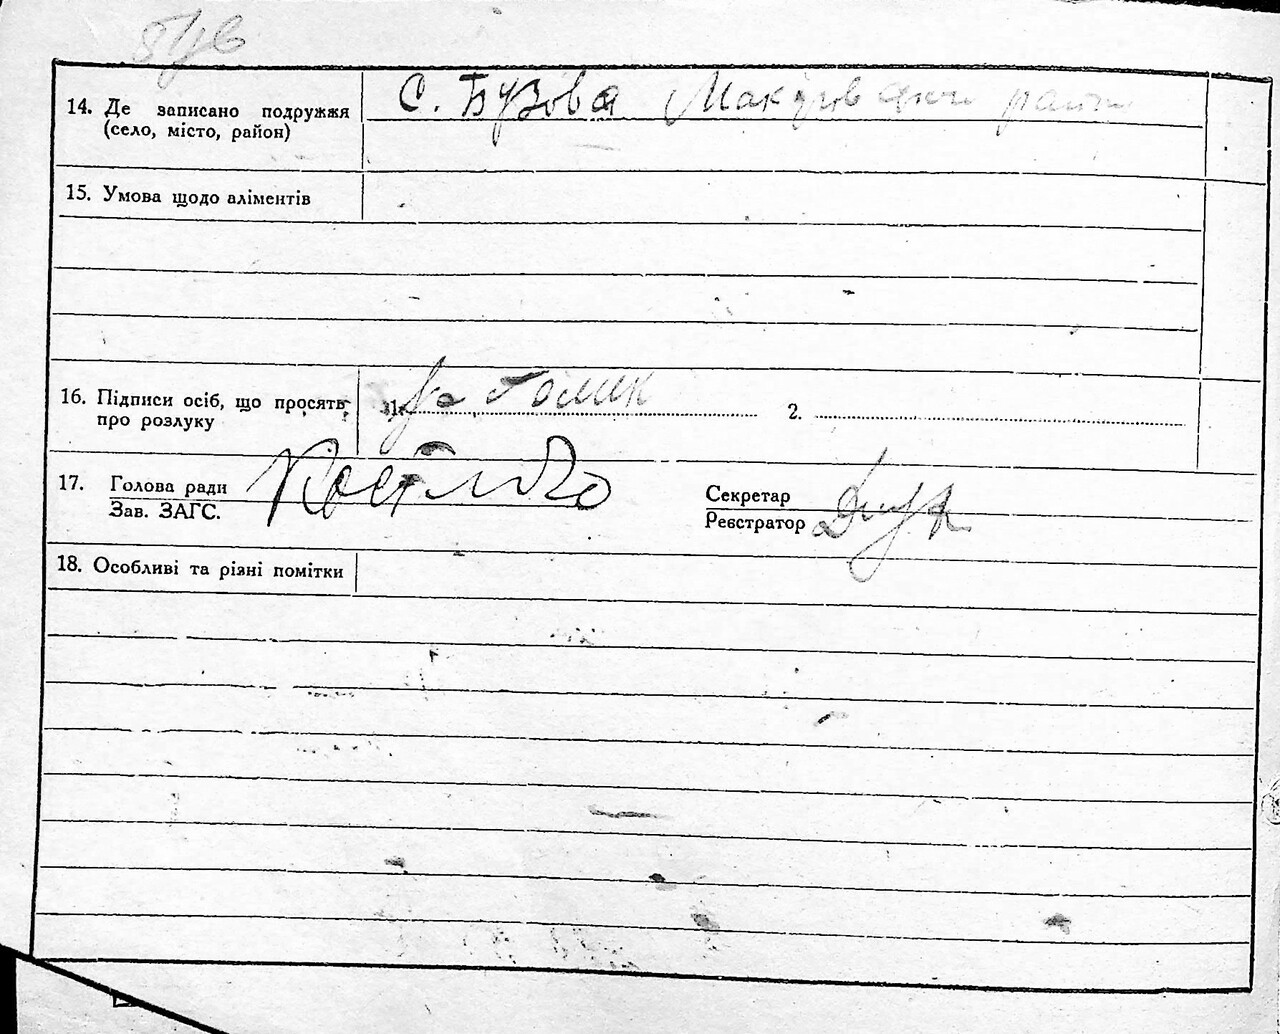 14. Де записано подружжя
(село, місто, район)
с. Бузова Макарівський район
15. Умова щодо аліментів
16. Підписи осіб, що просять
про розлуку
1. за Гомик
2.
17. Голова ради
Зав. ЗАГС.
Секретар
Реєстратор
18. Особливі та різні помітки